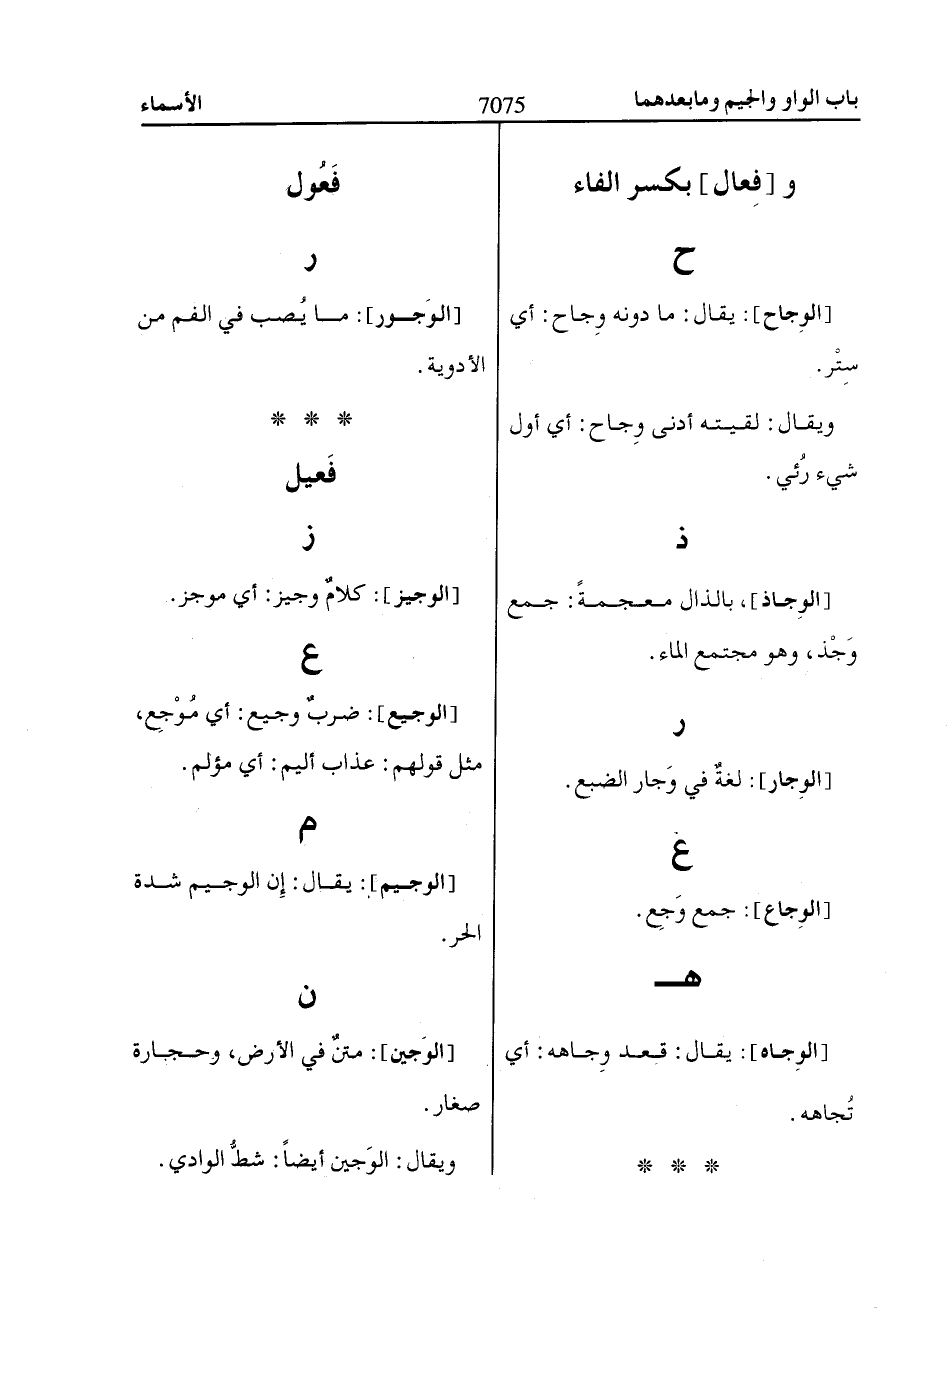 باب الواو والجيم ومابعدهما
7075
الأسماء
و [فِعال] بكسر الفاء
ح
[الوِجاح]: يقال: ما دونه وِجاح: أي
سِتْر.
ويقال: لقيته أدنى وِجاح: أي أول
شيء رُئي.
ذ
[الوِجاذ]، بالذال معجمةً: جمع
وَجْذ، وهو مجتمع الماء.
ر
[الوِجار]: لغةٌ في وَجار الضبع.
ع
[الوِجاع]: جمع وَجِع.
هـ
[الوِجاه]: يقال: قعد وِجاهه: أي
تُجاهه.
* * *
فَعُول
ر
[الوَجور]: ما يُصب في الفم من
الأدوية.
* * *
فَعيل
ز
[الوجيز]: كلامٌ وجيز: أي موجز.
ع
[الوجيع]: ضربٌ وجيع: أي مُوْجِع،
مثل قولهم: عذاب أليم: أي مؤلم.
م
[الوجيم]: يقال: إن الوجيم شدة
الحر.
ن
[الوَجين]: متنٌ في الأرض، وحجارة
صغار.
ويقال: الوَجين أيضاً: شطُّ الوادي.